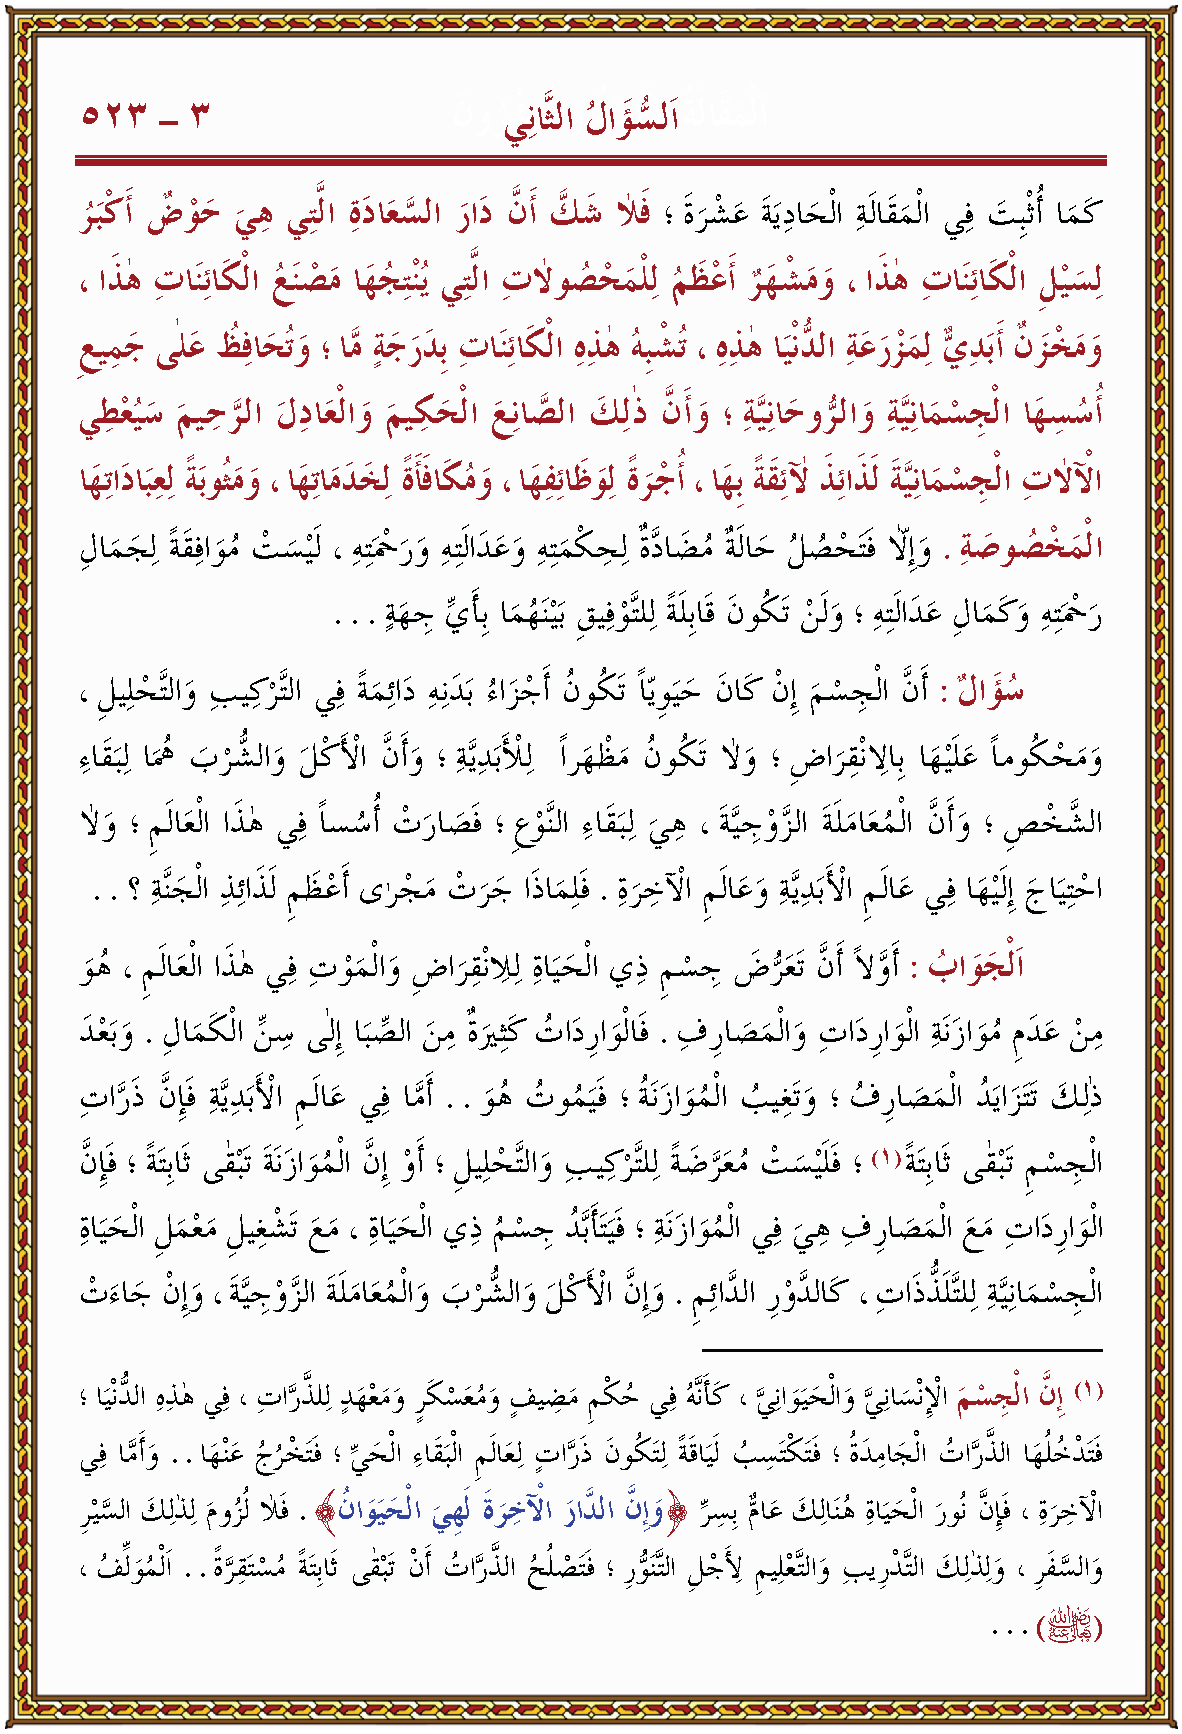 اَلسُّؤَالُ الثَّانِي
٣ ـ ٥٢٣
كَمَا أُثْبِتَ فِي الْمَقَالَةِ الْحَادِيَةَ عَشْرَةَ ؛ فَلَا شَكَّ أَنَّ دَارَ السَّعَادَةِ الَّتِي هِيَ حَوْضٌ أَكْبَرُ
لِسَيْلِ الْكَائِنَاتِ هٰذَا ، وَمَشْهَرٌ أَعْظَمُ لِلْمَحْصُولَاتِ الَّتِي يُنْتِجُهَا مَصْنَعُ الْكَائِنَاتِ هٰذَا ،
وَمَخْزَنٌ أَبَدِيٌّ لِمَزْرَعَةِ الدُّنْيَا هٰذِهِ ، تُشْبِهُ هٰذِهِ الْكَائِنَاتِ بِدَرَجَةٍ مَّا ؛ وَتُحَافِظُ عَلٰى جَمِيعِ
أُسُسِهَا الْجِسْمَانِيَّةِ وَالرُّوحَانِيَّةِ ؛ وَأَنَّ ذٰلِكَ الصَّانِعَ الْحَكِيمَ وَالْعَادِلَ الرَّحِيمَ سَيُعْطِي
الْاٰلَاتِ الْجِسْمَانِيَّةَ لَذَائِذَ لَاٰئِقَةً بِهَا ، أُجْرَةً لِوَظَائِفِهَا ، وَمُكَافَأَةً لِخَدَمَاتِهَا ، وَمَثُوبَةً لِعِبَادَاتِهَا
الْمَخْصُوصَةِ . وَإِلَّا فَتَحْصُلُ حَالَةٌ مُضَادَّةٌ لِحِكْمَتِهِ وَعَدَالَتِهِ وَرَحْمَتِهِ ، لَيْسَتْ مُوَافِقَةً لِجَمَالِ
رَحْمَتِهِ وَكَمَالِ عَدَالَتِهِ ؛ وَلَنْ تَكُونَ قَابِلَةً لِلتَّوْفِيقِ بَيْنَهُمَا بِأَيِّ جِهَةٍ . . .
سُؤَالٌ : أَنَّ الْجِسْمَ إِنْ كَانَ حَيَوِيّاً تَكُونُ أَجْزَاءُ بَدَنِهِ دَائِمَةً فِي التَّرْكِيبِ وَالتَّحْلِيلِ ،
وَمَحْكُوماً عَلَيْهَا بِالِانْقِرَاضِ ؛ وَلَا تَكُونُ مَظْهَراً لِلْأَبَدِيَّةِ ؛ وَأَنَّ الْأَكْلَ وَالشُّرْبَ هُمَا لِبَقَاءِ
الشَّخْصِ ؛ وَأَنَّ الْمُعَامَلَةَ الزَّوْجِيَّةَ ، هِيَ لِبَقَاءِ النَّوْعِ ؛ فَصَارَتْ أُسُساً فِي هٰذَا الْعَالَمِ ؛ وَلَا
احْتِيَاجَ إِلَيْهَا فِي عَالَمِ الْأَبَدِيَّةِ وَعَالَمِ الْاٰخِرَةِ . فَلِمَاذَا جَرَتْ مَجْرٰى أَعْظَمِ لَذَائِذِ الْجَنَّةِ ؟ . .
اَلْجَوَابُ : أَوَّلاً أَنَّ تَعَرُّضَ جِسْمِ ذِي الْحَيَاةِ لِلِانْقِرَاضِ وَالْمَوْتِ فِي هٰذَا الْعَالَمِ ، هُوَ
مِنْ عَدَمِ مُوَازَنَةِ الْوَارِدَاتِ وَالْمَصَارِفِ . فَالْوَارِدَاتُ كَثِيرَةٌ مِنَ الصِّبَا إِلٰى سِنِّ الْكَمَالِ . وَبَعْدَ
ذٰلِكَ تَتَزَايَدُ الْمَصَارِفُ ؛ وَتَغِيبُ الْمُوَازَنَةُ ؛ فَيَمُوتُ هُوَ . . أَمَّا فِي عَالَمِ الْأَبَدِيَّةِ فَإِنَّ ذَرَّاتِ
الْجِسْمِ تَبْقٰى ثَابِتَةً(١) ؛ فَلَيْسَتْ مُعَرَّضَةً لِلتَّرْكِيبِ وَالتَّحْلِيلِ ؛ أَوْ إِنَّ الْمُوَازَنَةَ تَبْقٰى ثَابِتَةً ؛ فَإِنَّ
الْوَارِدَاتِ مَعَ الْمَصَارِفِ هِيَ فِي الْمُوَازَنَةِ ؛ فَيَتَأَبَّدُ جِسْمُ ذِي الْحَيَاةِ ، مَعَ تَشْغِيلِ مَعْمَلِ الْحَيَاةِ
الْجِسْمَانِيَّةِ لِلتَّلَذُّذَاتِ ، كَالدَّوْرِ الدَّائِمِ . وَإِنَّ الْأَكْلَ وَالشُّرْبَ وَالْمُعَامَلَةَ الزَّوْجِيَّةَ ، وَإِنْ جَاءَتْ
(١) إِنَّ الْجِسْمَ الْإِنْسَانِيَّ وَالْحَيَوَانِيَّ ، كَأَنَّهُ فِي حُكْمِ مَضِيفٍ وَمُعَسْكَرٍ وَمَعْهَدٍ لِلذَّرَّاتِ ، فِي هٰذِهِ الدُّنْيَا ؛
فَتَدْخُلُهَا الذَّرَّاتُ الْجَامِدَةُ ؛ فَتَكْتَسِبُ لَيَاقَةً لِتَكُونَ ذَرَّاتٍ لِعَالَمِ الْبَقَاءِ الْحَيِّ ؛ فَتَخْرُجُ عَنْهَا . . وَأَمَّا فِي
الْاٰخِرَةِ ، فَإِنَّ نُورَ الْحَيَاةِ هُنَالِكَ عَامٌّ بِسِرِّ ﴿وَإِنَّ الدَّارَ الْاٰخِرَةَ لَهِيَ الْحَيَوَانُ﴾ . فَلَا لُزُومَ لِذٰلِكَ السَّيْرِ
وَالسَّفَرِ ، وَلِذٰلِكَ التَّدْرِيبِ وَالتَّعْلِيمِ لِأَجْلِ التَّنَوُّرِ ؛ فَتَصْلُحُ الذَّرَّاتُ أَنْ تَبْقٰى ثَابِتَةً مُسْتَقِرَّةً . . اَلْمُؤَلِّفُ ،
(رَضِيَ اللهُ تَعَالٰى عَنْهُ) . . .